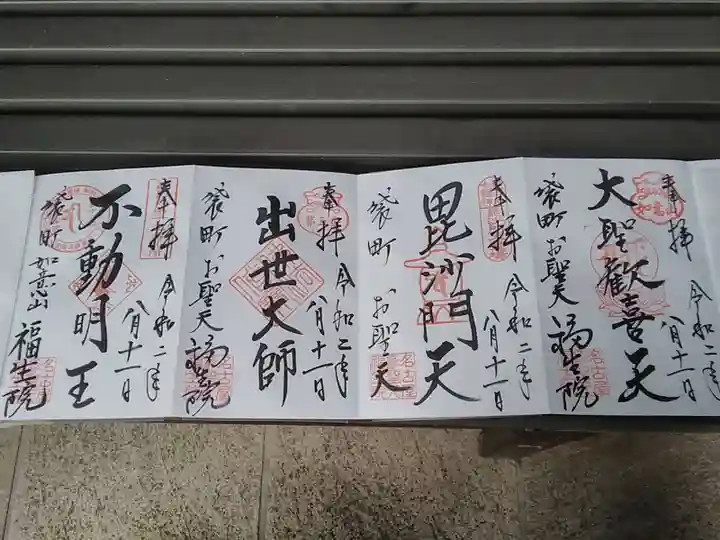 奉拝
令和二年
八月十一日
大聖歓喜天
袋町お聖天
福生院
名古屋
奉拝
令和二年
八月十一日
毘沙門天
袋町 お聖天
名古屋
奉拝
令和二年
八月十一日
出世大師
袋町 お聖天
福生院
名古屋
奉拝
令和二年
八月十一日
不動明王
袋町 如意山
福生院